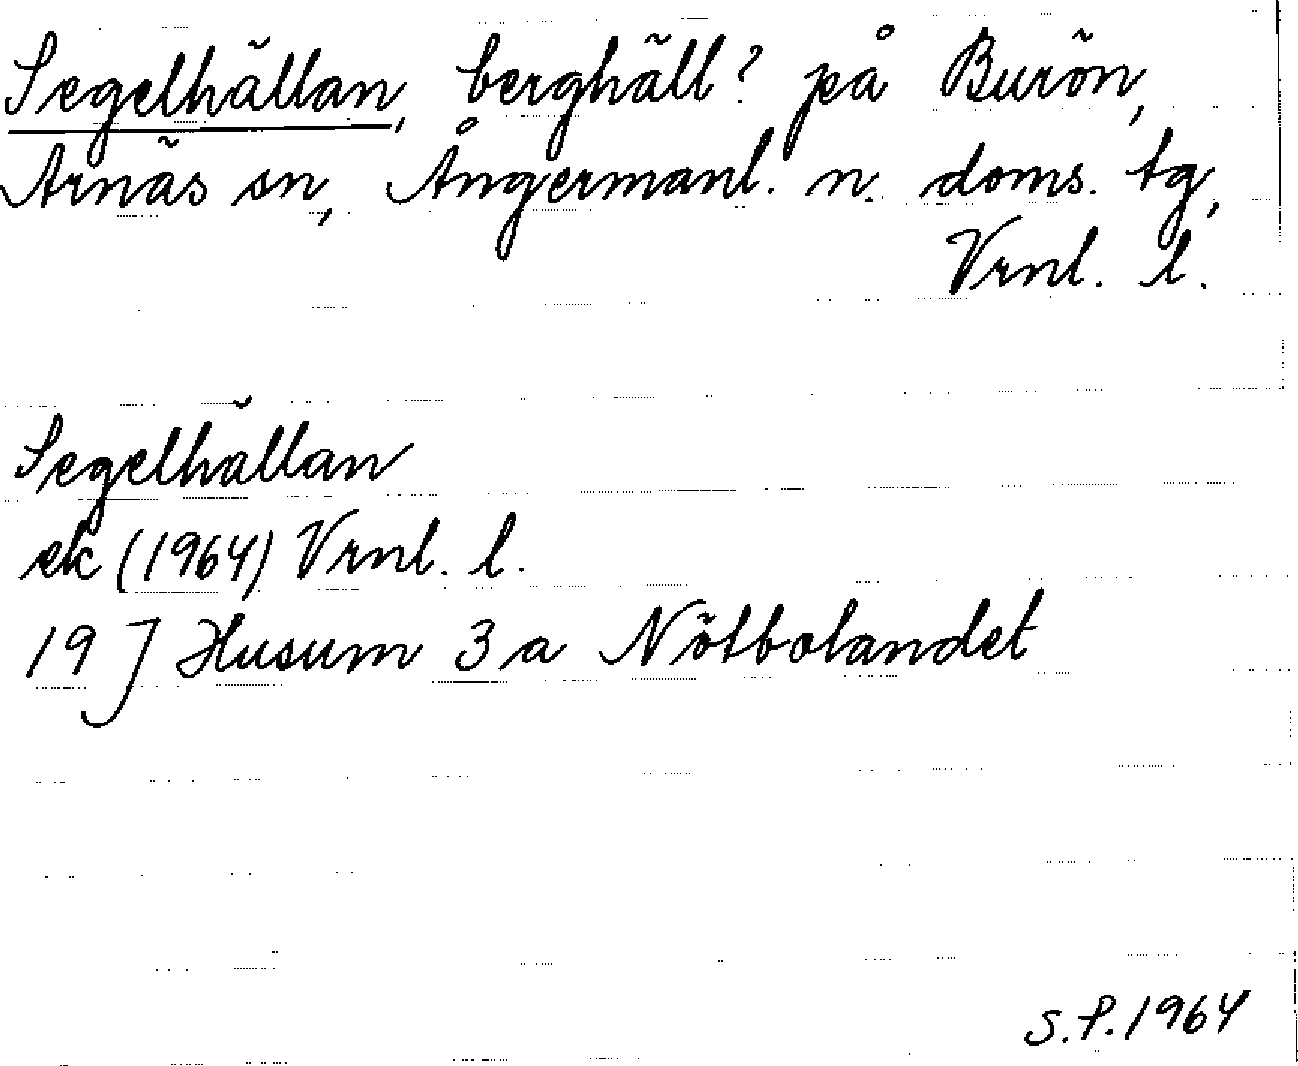 Segelhällan, berghäll? på Burön,
Arnäs sn, Ångermanl. n. doms. tg,
Vrnl. l.
Segelhällan
ek (1964) Vrnl. l.
19 J Husum 3 a Nötbolandet
S.P. 1964